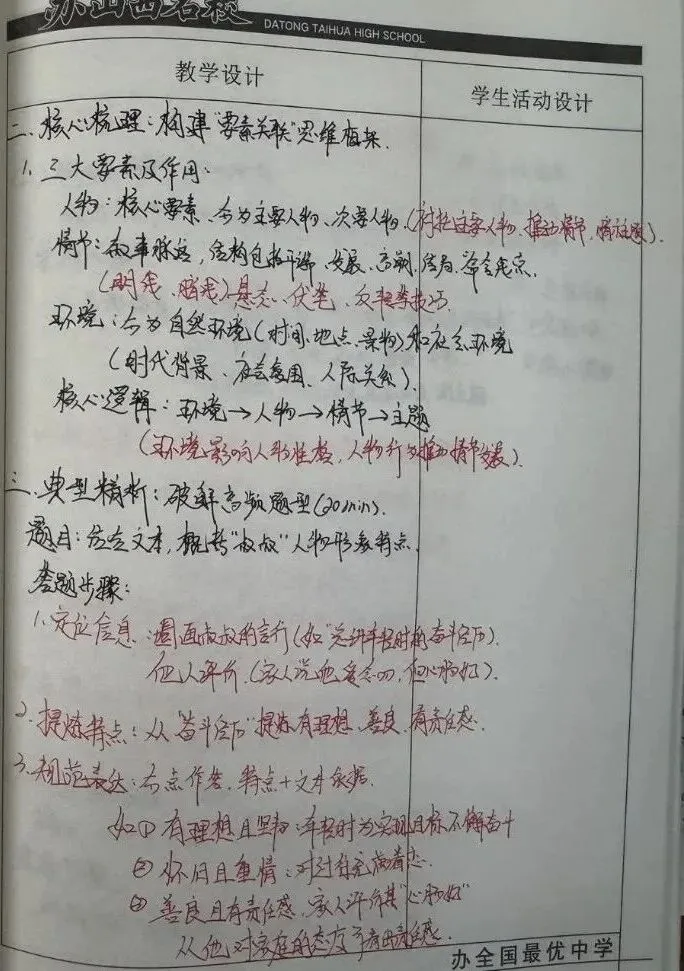 办山西名校
DATONG TAIHUA HIGH SCHOOL
教学设计
学生活动设计
二、核心梳理：构建“要素关联”思维框架.
1. 三大要素及作用：
人物：核心要素、分为主要人物、次要人物.(衬托主要人物、推动情节、暗示主题).
情节：叙事脉络，结构包括开端、发展、高潮、结局.
(明线、暗线)悬念、伏笔、
环境：分为自然环境(时间、地点、景物)和社会环境
(时代背景、社会氛围、人际关系).
核心逻辑：环境→人物→情节→主题
(环境影响人物性格，人物行为推动情节发展).
三、典型精析：破解高频题型(20min).
题目：结合文本，概括“叔叔”人物形象特点.
答题步骤：
1. 定位信息：圈画叔叔的言行(如“总讲年轻时的奋斗经历).
他人评价.(家人说他爱念叨，但心肠好).
2. 提炼特点：从“奋斗经历”提炼有理想、善良、有责任感.
3. 规范表达：分点作答，特点+文本依据.
如①有理想且坚韧：年轻时为实现目标不懈奋斗
②怀旧且重情：对过往充满眷恋.
③善良且有责任感，家人评价其“心肠好”
从他对家庭的态度可看出责任感.
办全国最优中学